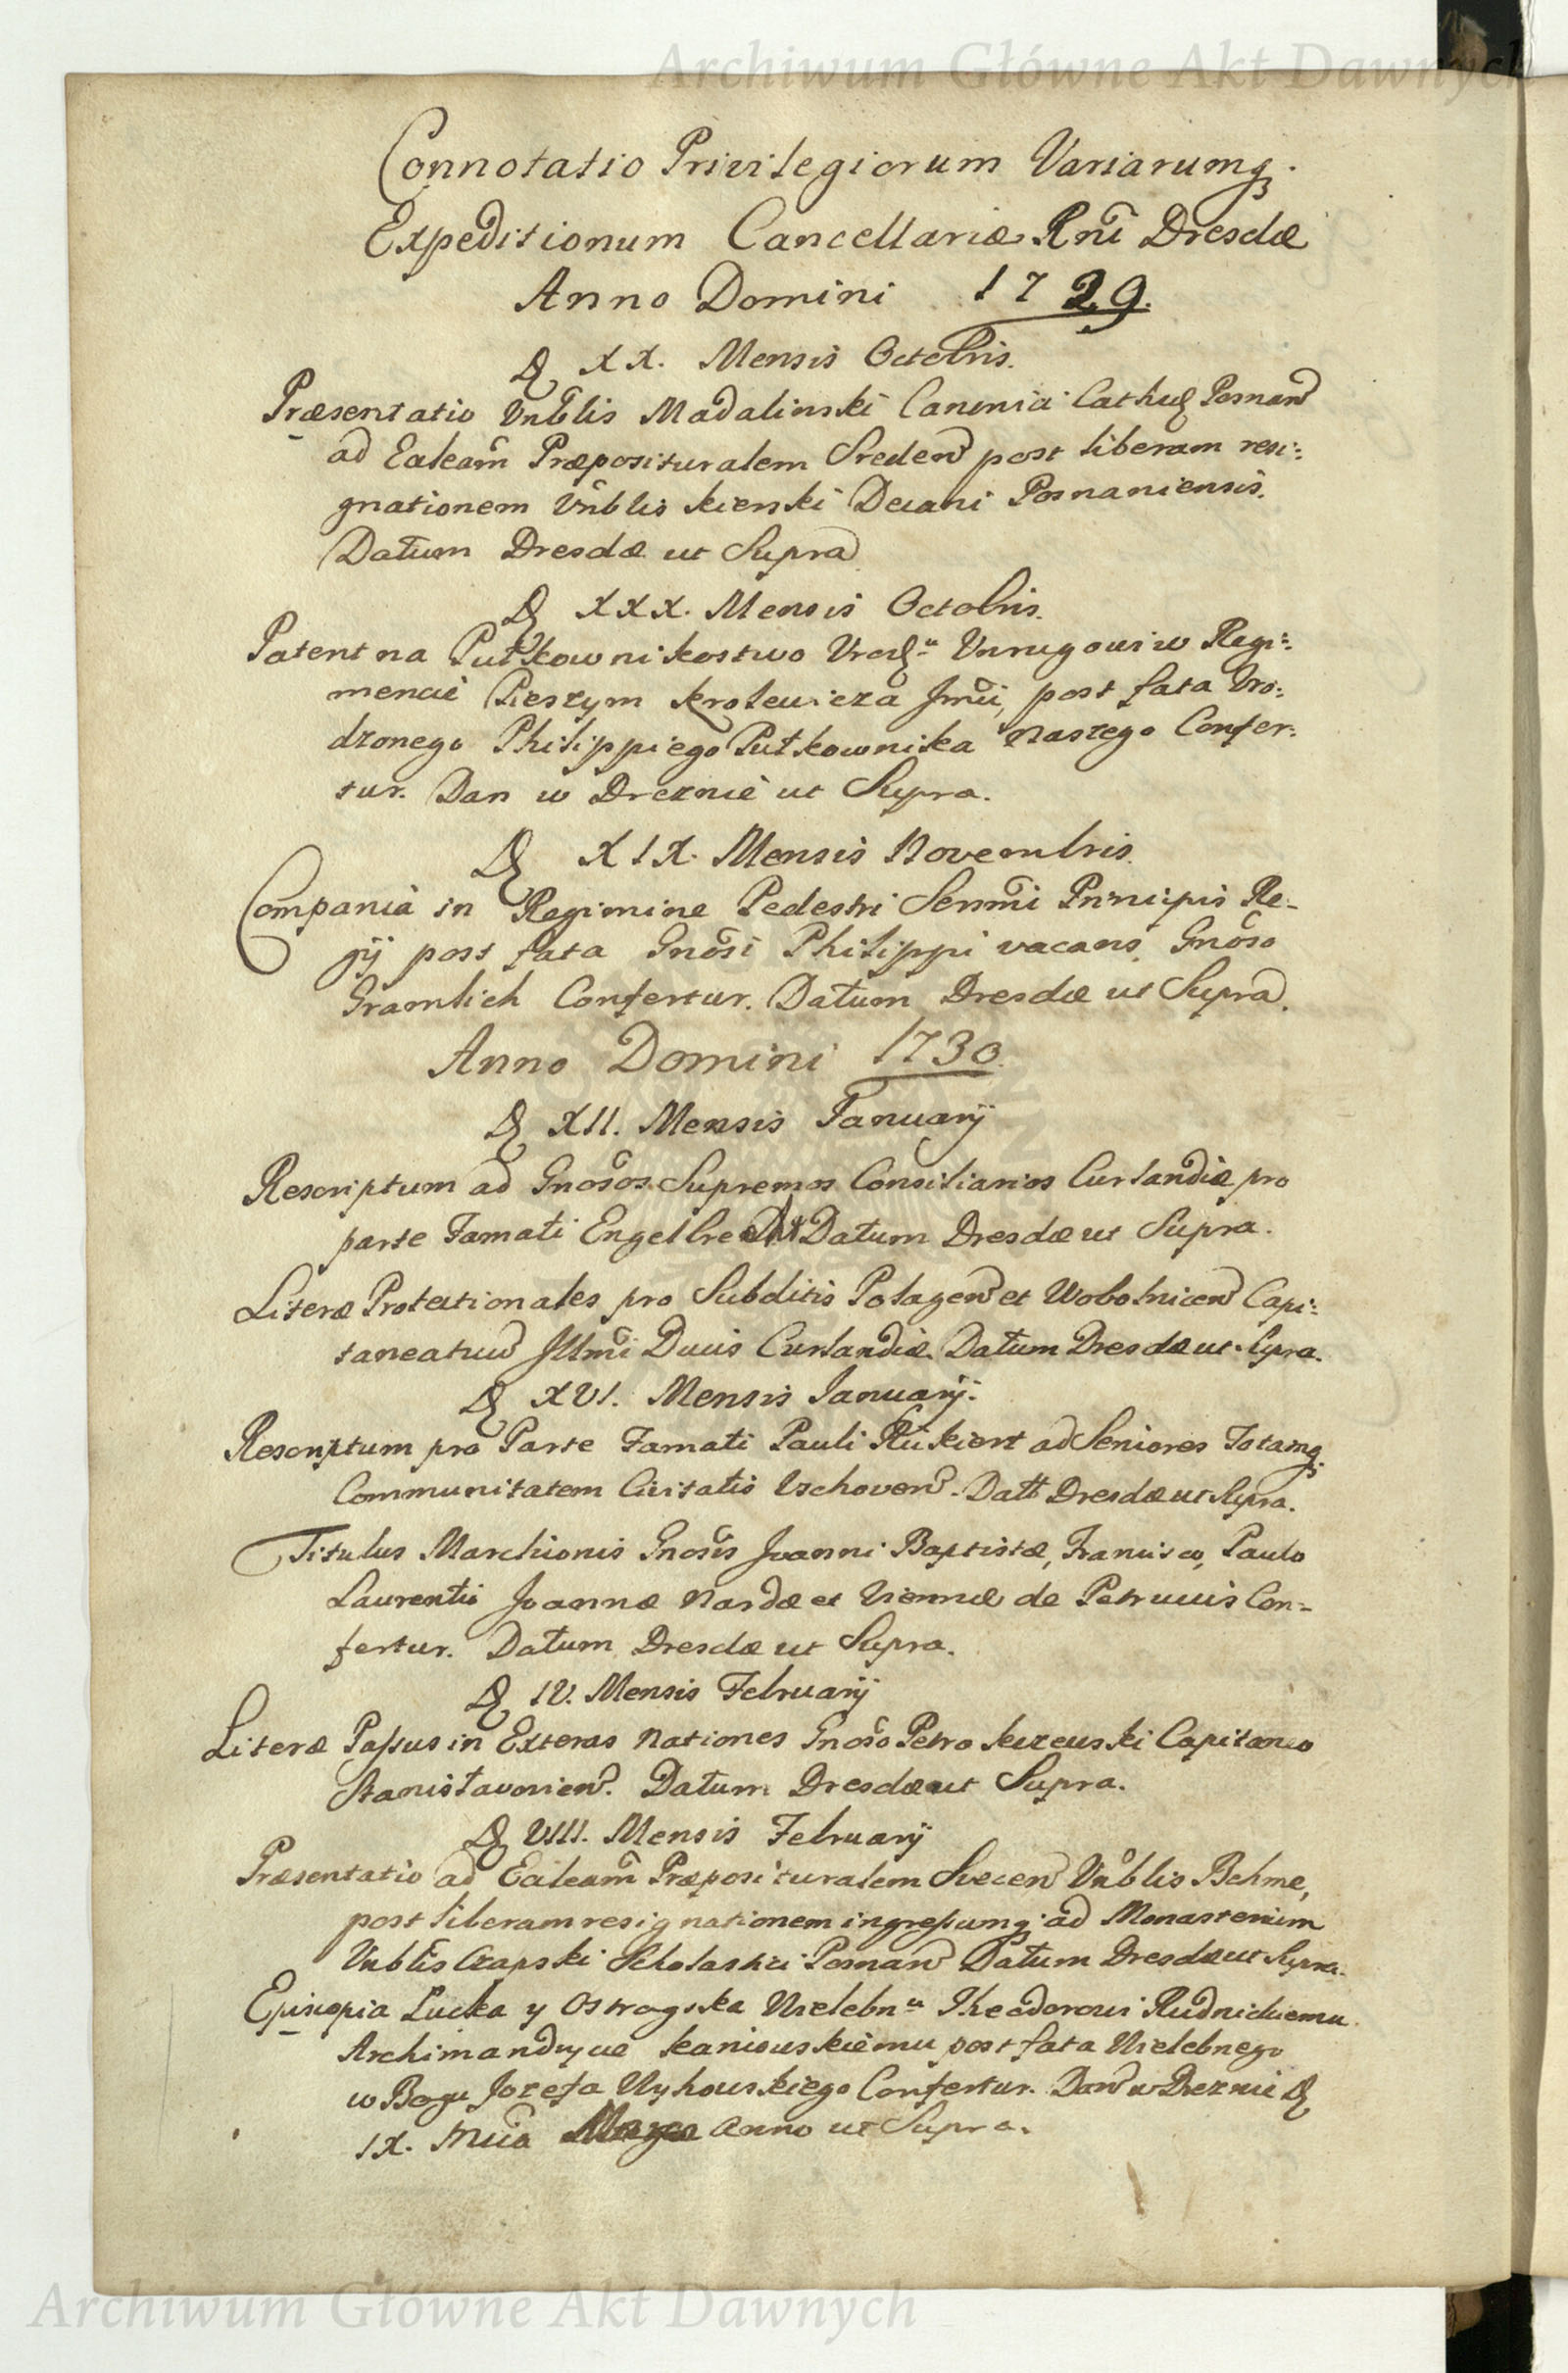 Archiwum Główne Akt Dawnych
Connotatio Privilegiorum Variarumq.
Expeditionum Cancellariæ Rni Dresdæ
Anno Domini 1729.
D XX. Mensis Octobris.
Præsentatio Vnblis Madalinski Canonici Cathed Posnan
ad Ealeam Præposituralem Sreden post liberam resi:
gnationem Vnblis Kierski Decani Posnaniensis.
Datum Dresdæ ut Supra
D XXX. Mensis Octobris.
Patent na Pułkownikostwo Vrod Vnrugowi w Regi:
mencie Pieszym Krolewicza Jmci, post fata Vro:
dzonego Philippiego Pułkownika naszego Confer:
tur. Dan w Dreznie ut Supra.
D XIX. Mensis Novembris.
Compania in Regimine Pedestri Sermi Principis Re-
gij post fata Gnosi Philippi vacans, Gnoso
Gramlich Confertur. Datum Dresdæ ut Supra.
Anno Domini 1730.
D XII. Mensis Januarij
Rescriptum ad Gnosos Supremos Consiliarios Curlandiæ pro
parte Famati Engelbrecht Datum Dresdæ ut Supra.
Literæ Protectionales pro Subditis Polagen et Wobolnicen Capi:
taneatuu Illmi Ducis Curlandiæ. Datum Dresdæ ut Supra.
D XVI. Mensis Januarij.
Rescriptum pro Parte Famati Pauli Rükiert ad Seniores Totamq.
Communitatem Civitatis Vschoven. Datt Dresdæ ut Supra.
Titulus Marchionis Gnosis Joanni Baptistæ, Francisco, Paulo
Laurentio Joannæ Nardæ et Viennæ de Petruciis Con-
fertur. Datum Dresdæ ut Supra.
D IV. Mensis Februarij
Literæ Passus in Exteras Nationes Gnoso Petro Kczewski Capitaneo
Stanisławowien. Datum Dresdæ ut Supra.
D VIII. Mensis Februarij
Præsentatio ad Ealeam Præposituralem Svecen Vnblis Behme,
post liberam resignationem ingressumq. ad Monasterium
Vnblis Czapski Scholastici Posnan Datum Dresdæ ut Supra.
Episcopia Łucka y Ostrogska Wielebn Theodorowi Rudnickiemu
Archimandrycie Kaniowskiemu post fata Wielebnego
w Bogu Jozefa Wyhowskiego Confertur. Dan w Dreznie D
IX. Anno ut Supra.
Archiwum Główne Akt Dawnych